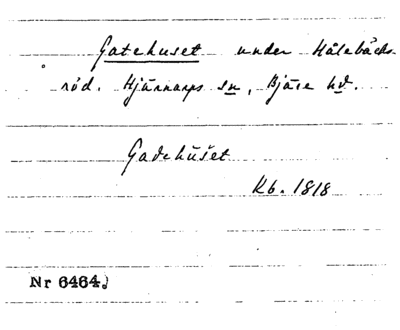 Gatehuset under Hålebäcks-
röd. Hjärnarps sn, Bjäre hd.
Gadehuset
Kb. 1818
Nr 6464.